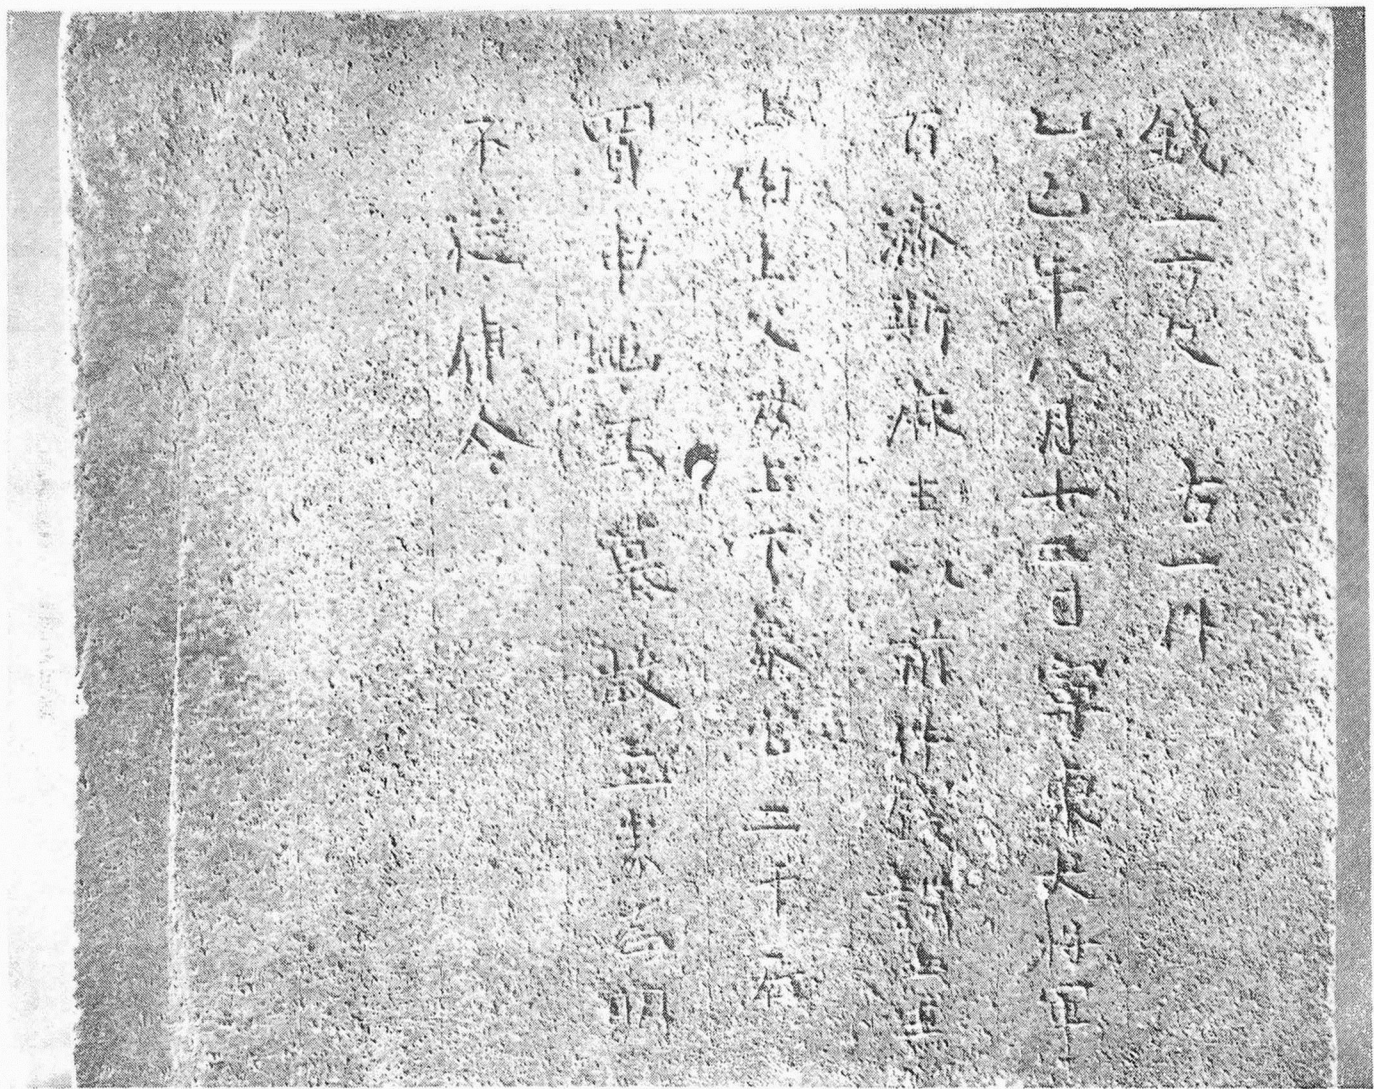 錢一万文　右一件
乙巳年八月十二日寧東大將軍
百濟斯麻王以前件錢詣土王
土伯土父母上下衆官二千石
買申地爲墓故立券爲明
不從律令